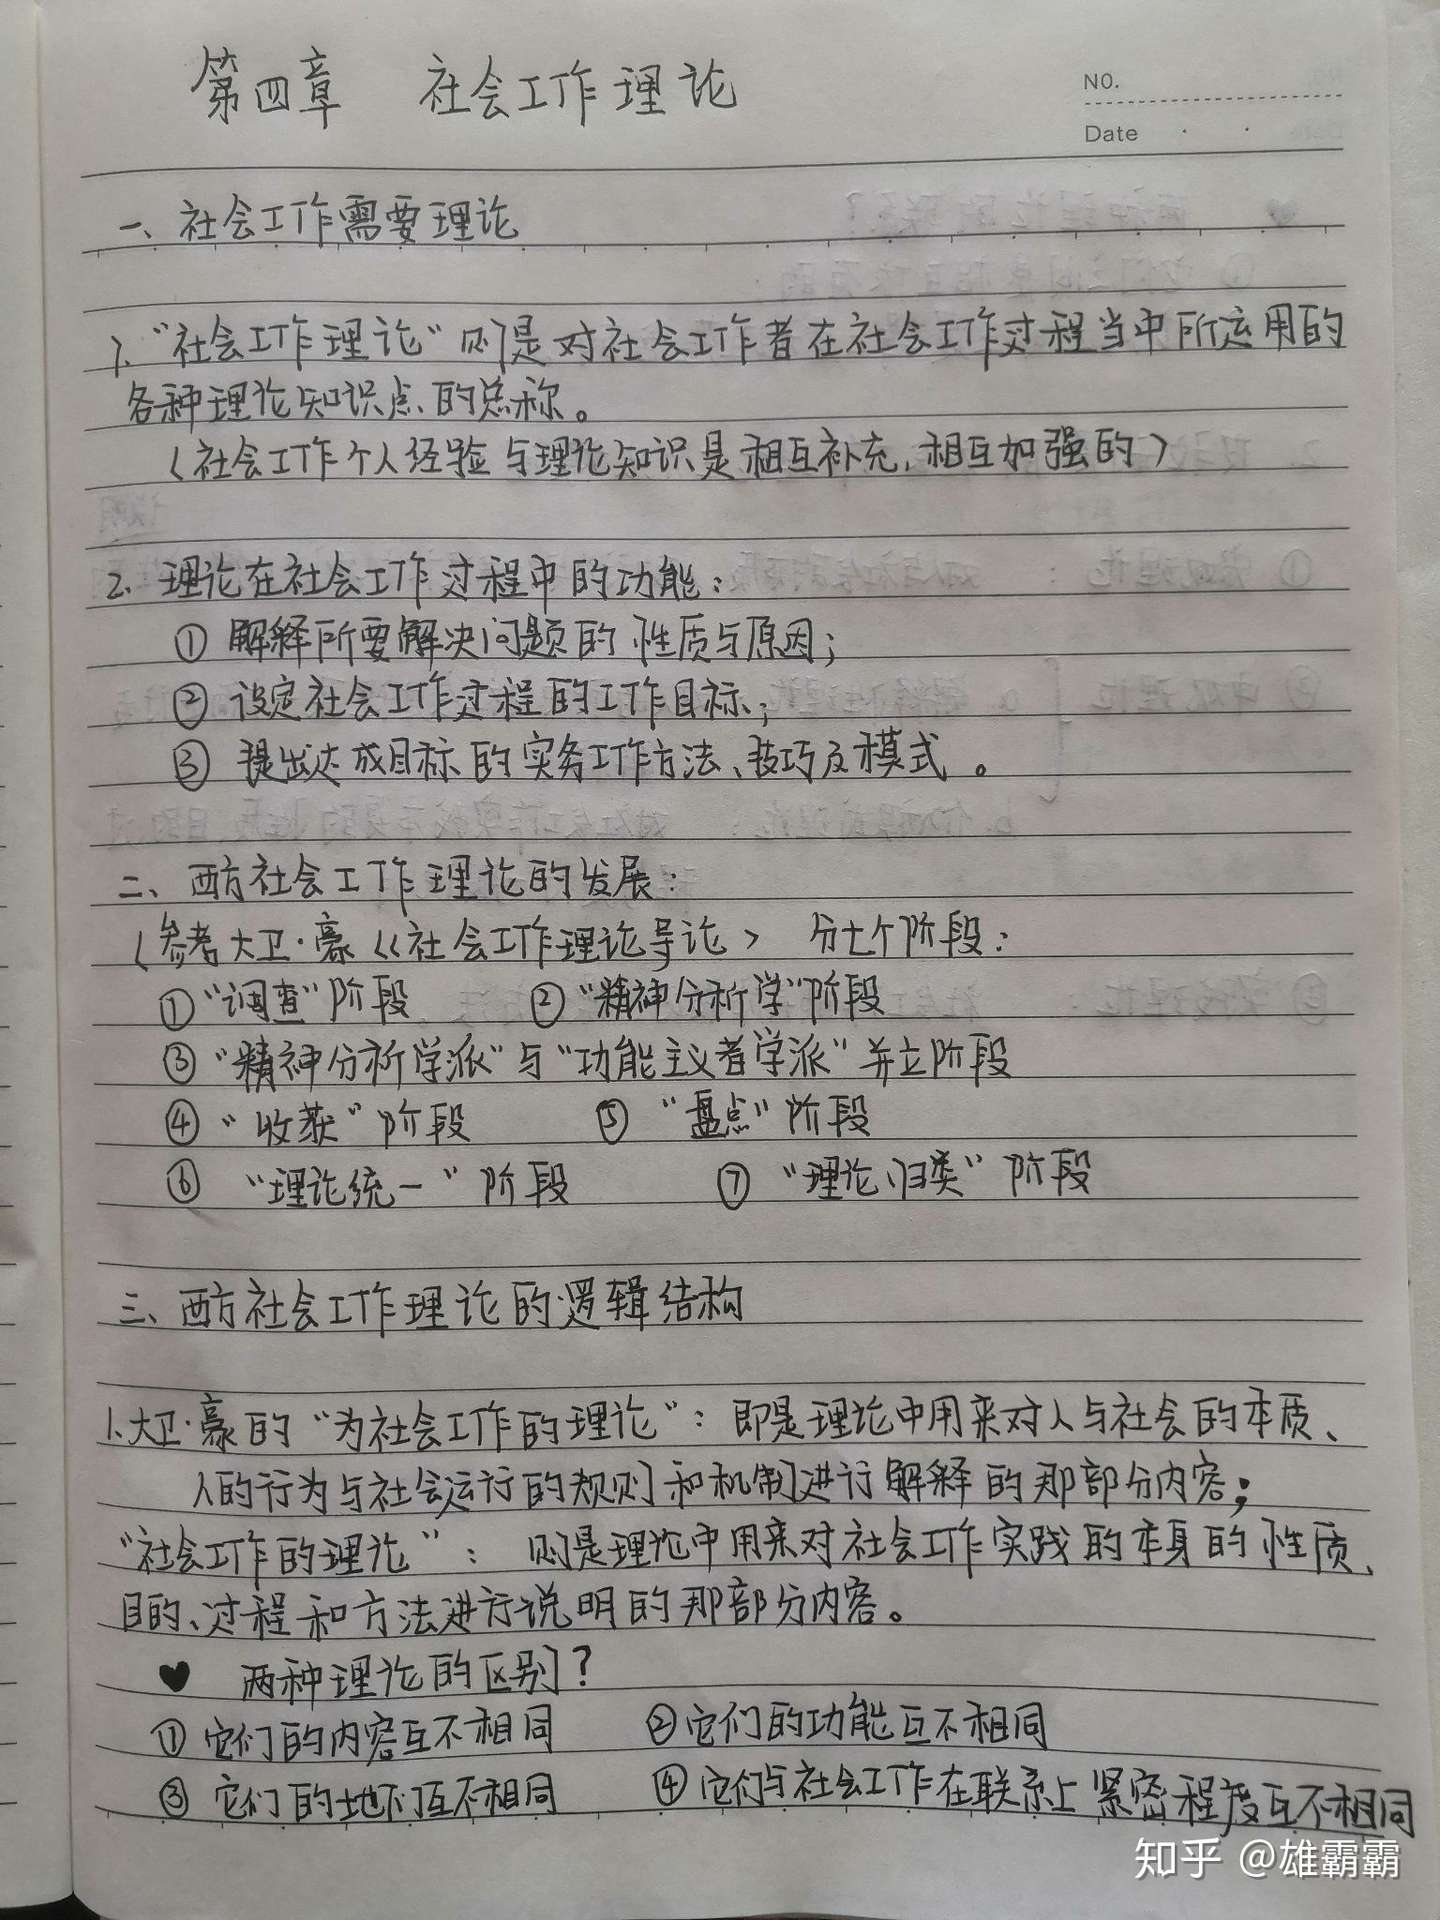 第四章 社会工作理论
NO.
Date
一、社会工作需要理论
1."社会工作理论"则是对社会工作者在社会工作过程当中所运用的
各种理论知识点的总称。
(社会工作个人经验与理论知识是相互补充,相互加强的)
2.理论在社会工作过程中的功能:
①解释所要解决问题的性质与原因;
②设定社会工作过程的工作目标;
③提出达成目标的实务工作方法、技巧及模式。
二、西方社会工作理论的发展:
(参考大卫·豪《社会工作理论导论》 分七个阶段:
①"调查"阶段 ②"精神分析学"阶段
③"精神分析学派"与"功能主义者学派"并立阶段
④"收获"阶段 ⑤"盘点"阶段
⑥"理论统一"阶段 ⑦"理论归类"阶段
三、西方社会工作理论的逻辑结构
1.大卫·豪的"为社会工作的理论":即是理论中用来对人与社会的本质、
人的行为与社会运行的规则和机制进行解释的那部分内容;
"社会工作的理论":则是理论中用来对社会工作实践的本身的性质、
目的、过程和方法进行说明的那部分内容。
♥ 两种理论的区别?
①它们的内容互不相同 ②它们的功能互不相同
③它们的地们互不相同 ④它们与社会工作在联系上紧密程度互不相同
知乎 @雄霸霸